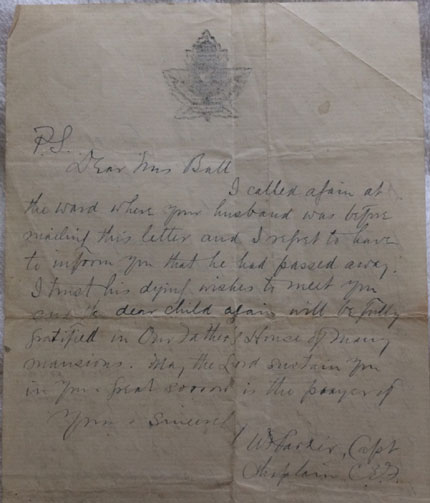 P.S.
Dear Mrs Ball
I called again at
the ward where your husband was before
mailing this letter and I regret to have
to inform you that he had passed away.
I trust his dying wishes to meet you
and dear child again will be fully
gratified in Our Father's House of many
mansions. May the Lord sustain you
in your great sorrow is the prayer of
Yours sincerely
W Parker, Capt
Chaplain C.E.F.